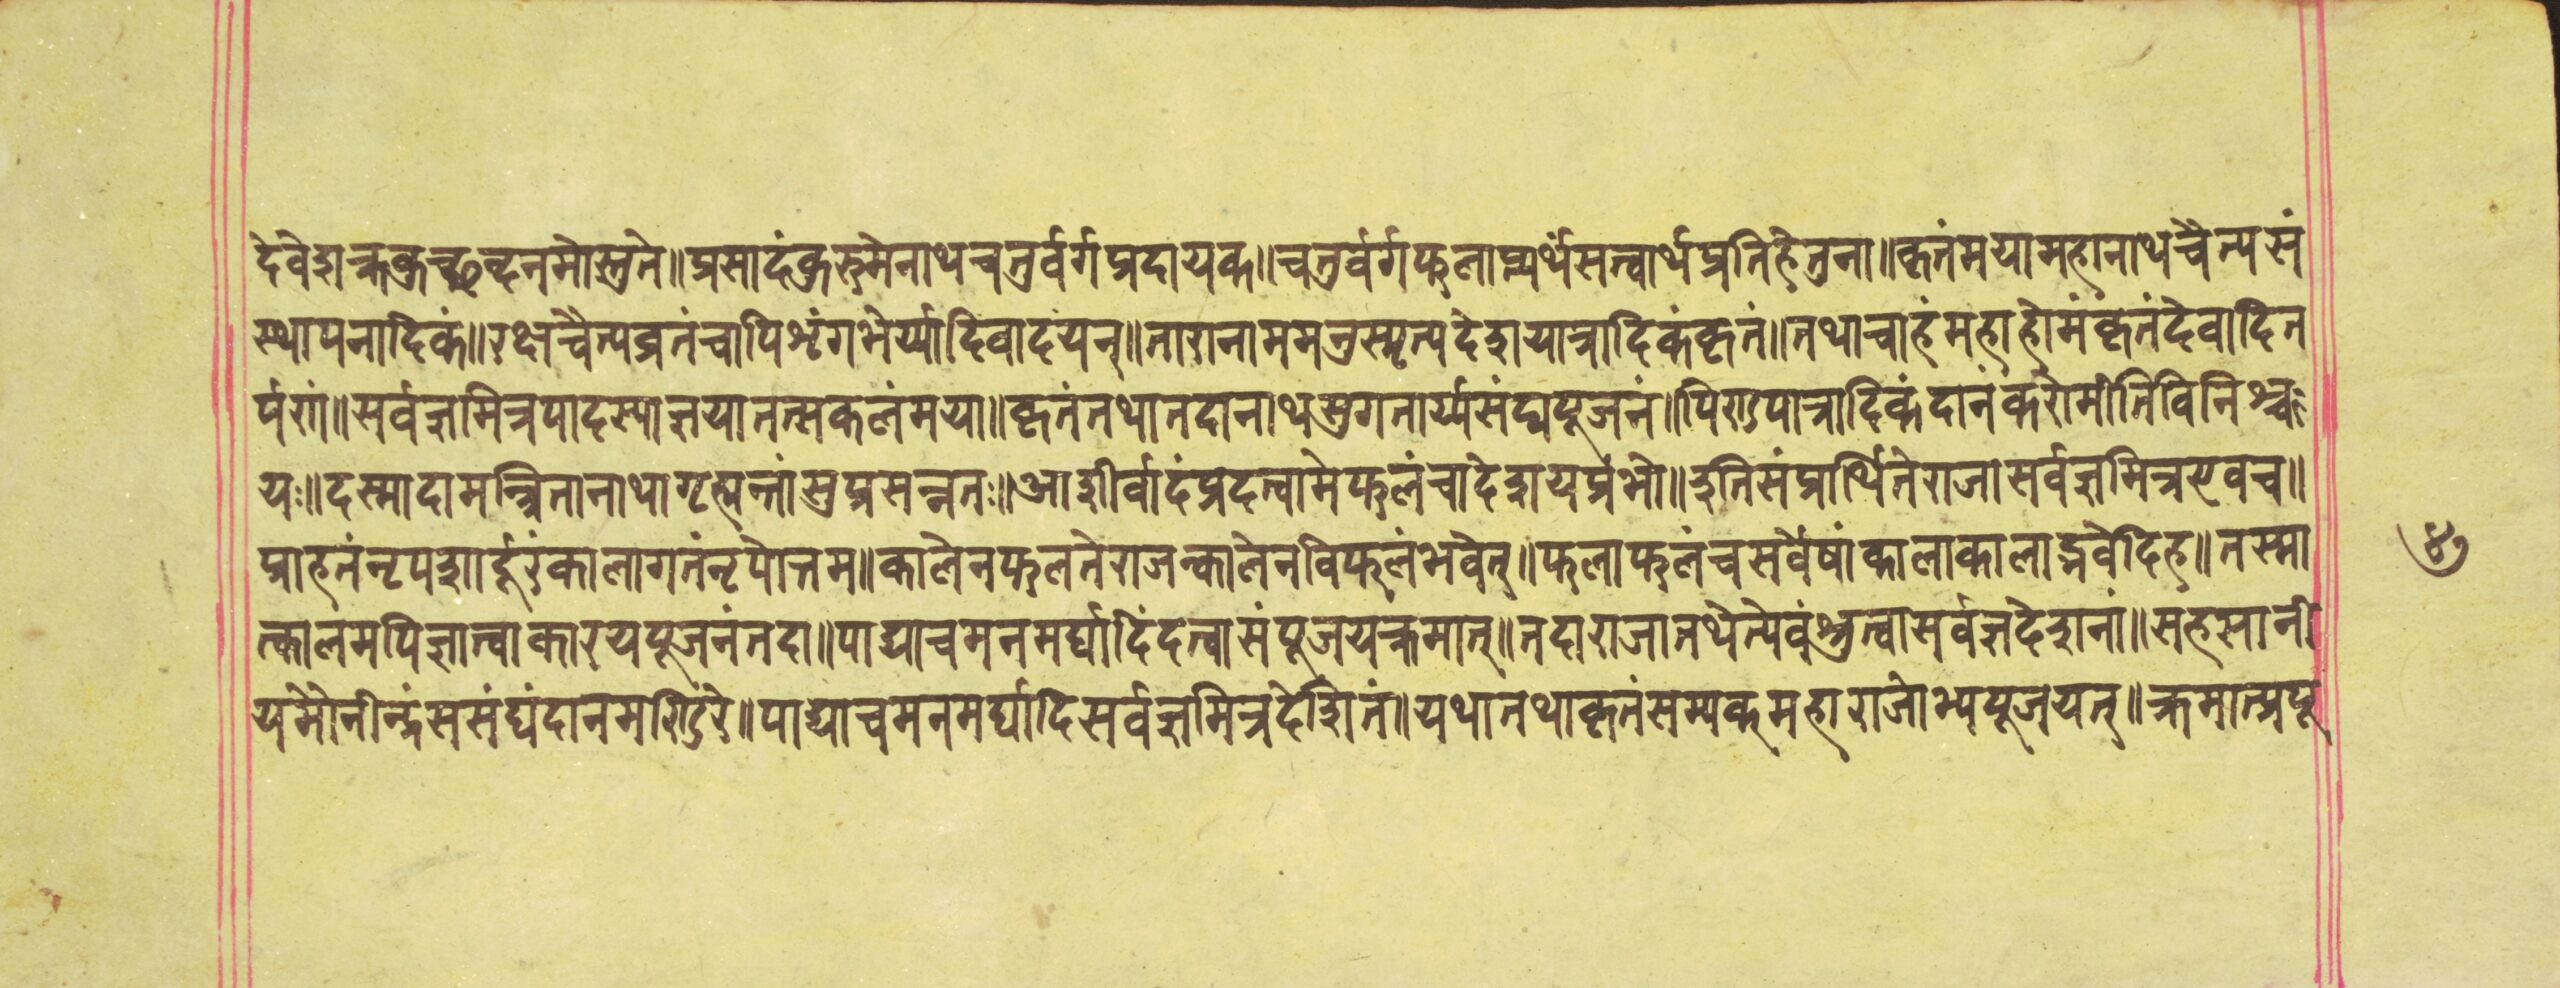 देवेशक्रकुच्छन्दनमोस्तुते॥प्रसादंकुरुमेनाथचतुर्वर्गप्रदायक॥चतुर्वर्गफलाप्त्यर्थंसत्वार्थप्रतिहेतुना॥कृतंमयामहानाथचैत्यसं
स्थापनादिकं॥लक्षचैत्यव्रतंचापिशृंगभेर्य्यादिवादयन्॥तारानाममनुस्मृत्यदेशयात्रादिकंकृतं॥तथाचाहंमहाहोमंकृतंदेवादित
र्पणं॥सर्वज्ञमित्रपादस्याज्ञयातत्सकलंमया॥कृतंतथातदानाथसुगतार्य्यसंघपूजनं॥पिण्डपात्रादिकंदानंकरोमीतिविनिश्च
यः॥दस्मादामन्त्रितानाथागृह्यन्तांसुप्रसन्नतः॥आशीर्वादंप्रदत्वामेफलंचादेशयप्रभो॥इतिसंप्रार्थितेराजासर्वज्ञमित्रएवच॥
प्राहतंनृपशार्दूरंकालागतंनृपोत्तम॥कालेनफलतेराजन्कालेनविफलंभवेत्॥फलाफलंचसर्वेषांकालाकालाद्भवेदिह॥तस्मा
त्कालमपिज्ञात्वाकारयपूजनंतदा॥पाद्याचमनमर्घादिंदत्वासंपूजयक्रमात्॥तदाराजातथेत्येवंश्रुत्वासर्वज्ञदेशनां॥सहसानी
यमौनीन्द्रंससंघंदानमण्डिरे॥पाद्याचमनमर्घादिसर्वज्ञमित्रदेशितं॥यथातथाकृतंसम्यक्महाराजोभ्यपूजयत्॥क्रमात्प्रपू
४७